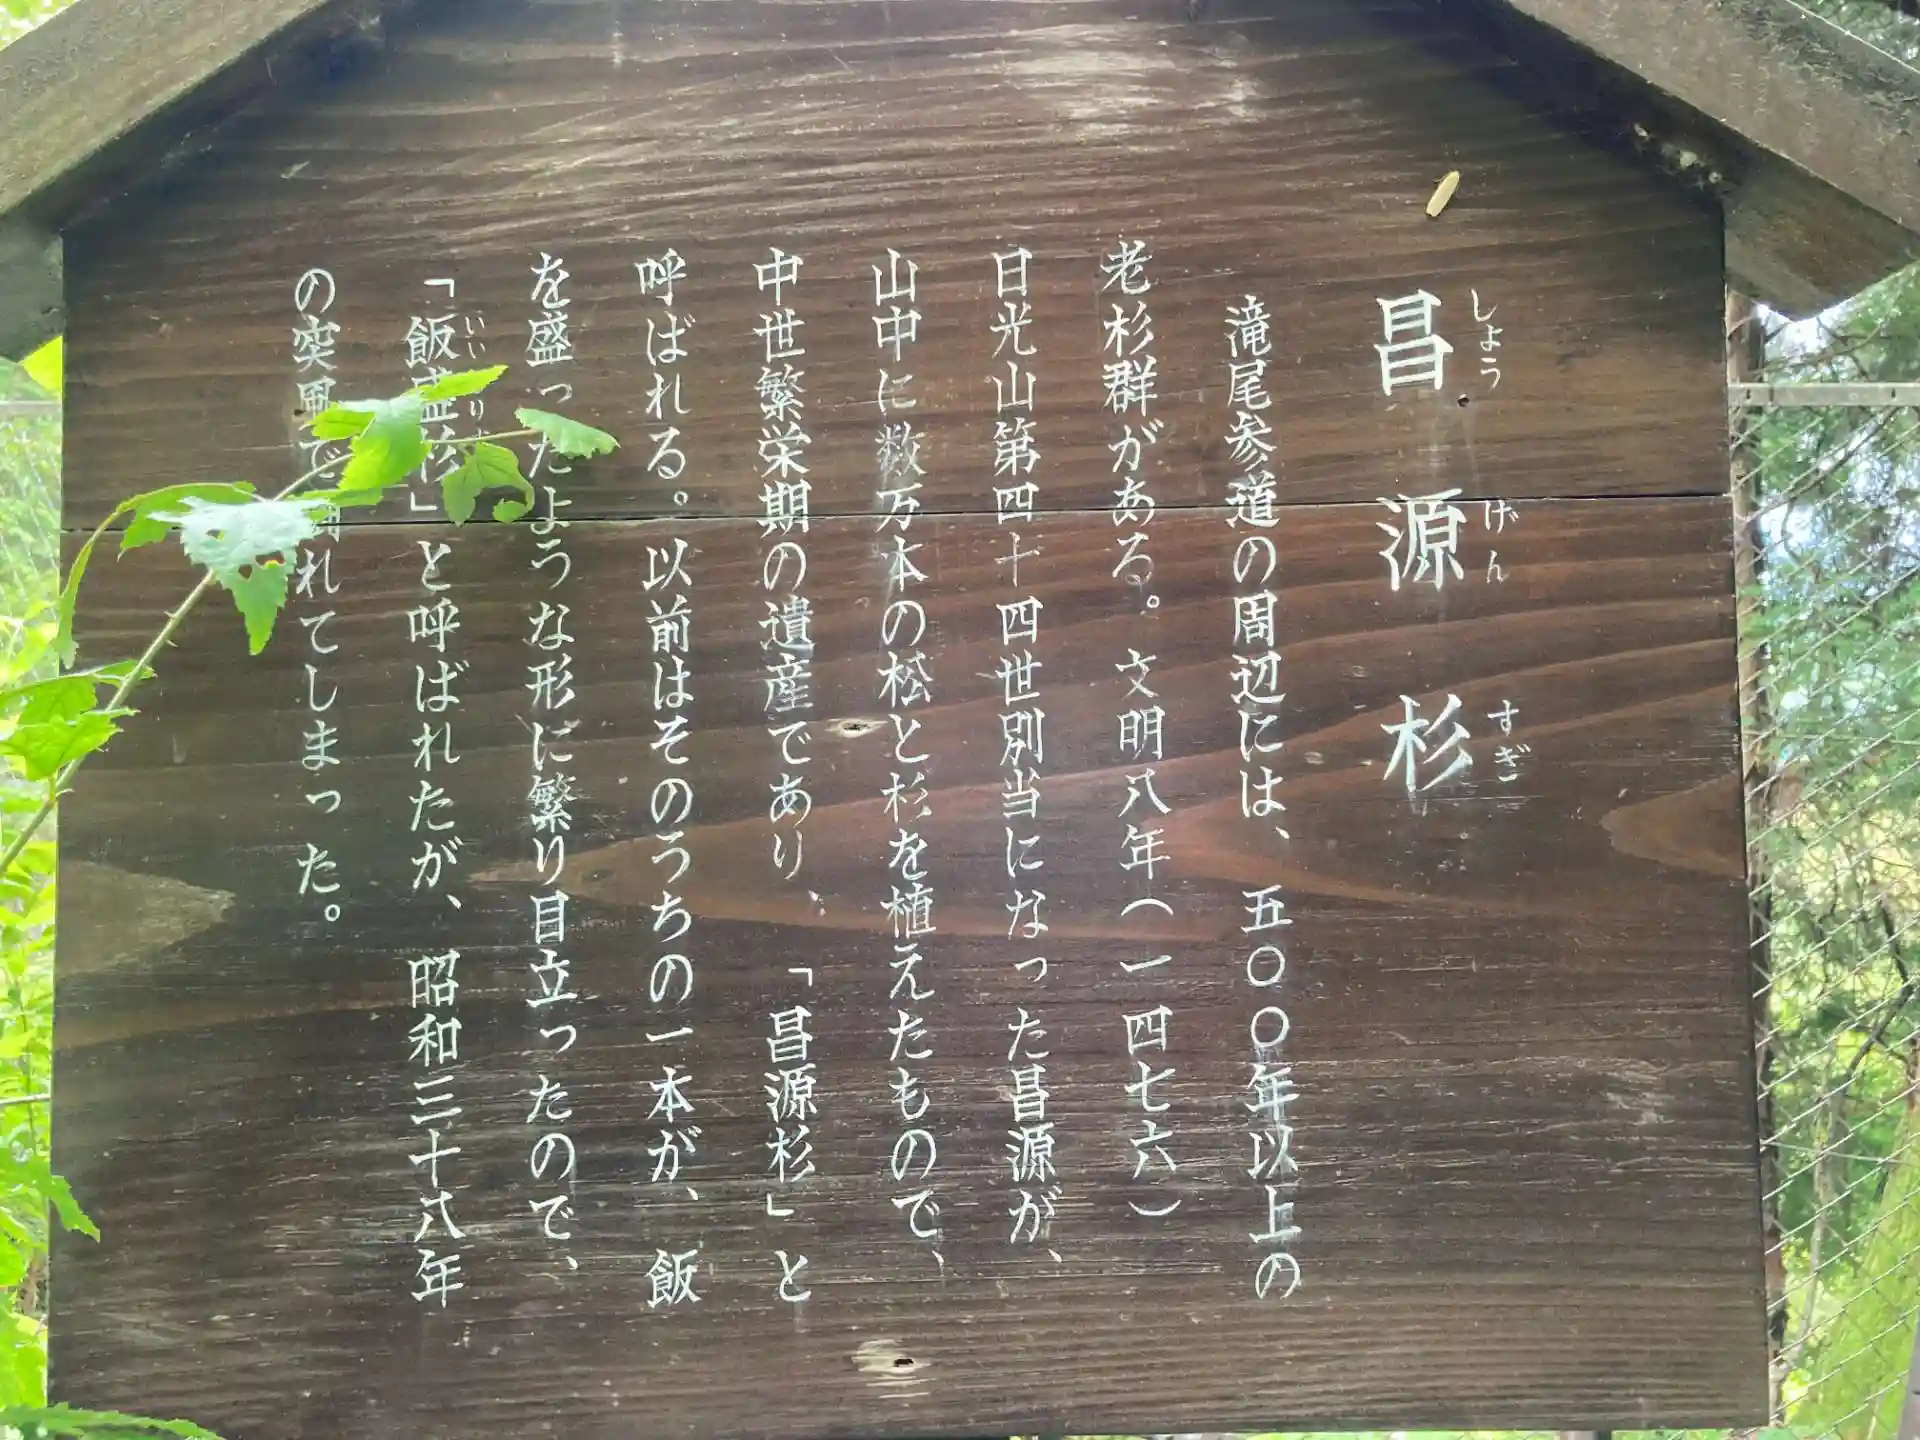 昌源杉
しょうげんすぎ
滝尾参道の周辺には、五〇〇年以上の
老杉群がある。文明八年（一四七六）
日光山第四十四世別当になった昌源が、
山中に数万本の松と杉を植えたもので、
中世繁栄期の遺産であり、「昌源杉」と
呼ばれる。以前はそのうちの一本が、飯
を盛ったような形に繁り目立ったので、
「飯盛杉」と呼ばれたが、昭和三十八年
の突風で倒れてしまった。